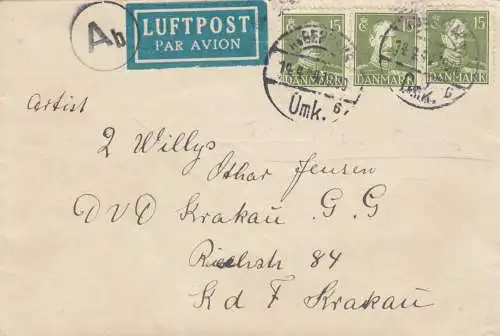 Ab
LUFTPOST
PAR AVION
15
DANMARK
15
DANMARK
15
DANMARK
Ümk. 6
Ümk. 6
Artist
2 Willys
Othar Jensen
DVD Krakau G. G
84
K d F Krakau